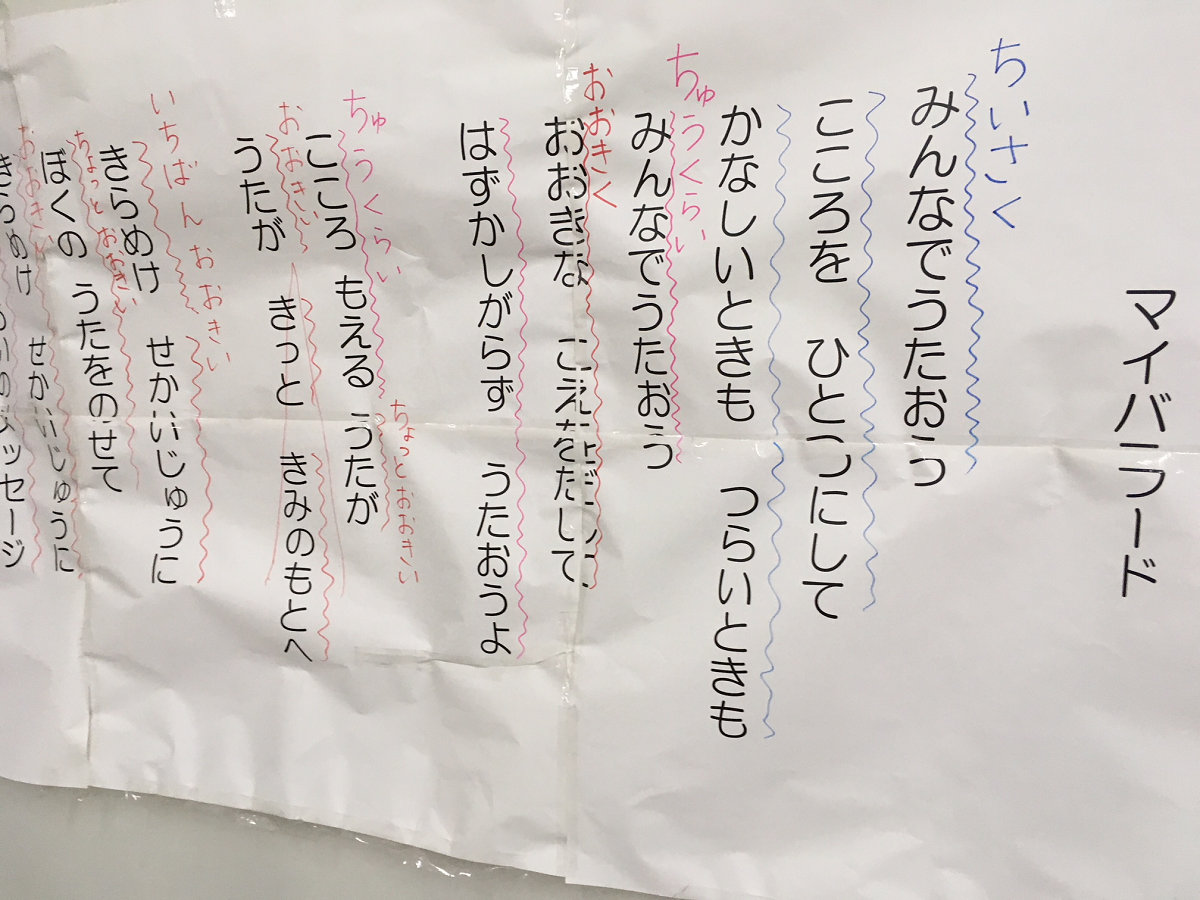 マイバラード
ちいさく
みんなでうたおう
こころを ひとつにして
かなしいときも つらいときも
ちゅうくらい
みんなでうたおう
おおきく
おおきな こえをだして
はずかしがらず うたおうよ
ちゅうくらい
ちょっとおおきい
こころ もえる うたが
おおきい
うたが きっと きみのもとへ
いちばん おおきい
きらめけ せかいじゅうに
ちょっとおおきい
ぼくの うたをのせて
おおきい
きらめけ せかいじゅうに
メッセージ